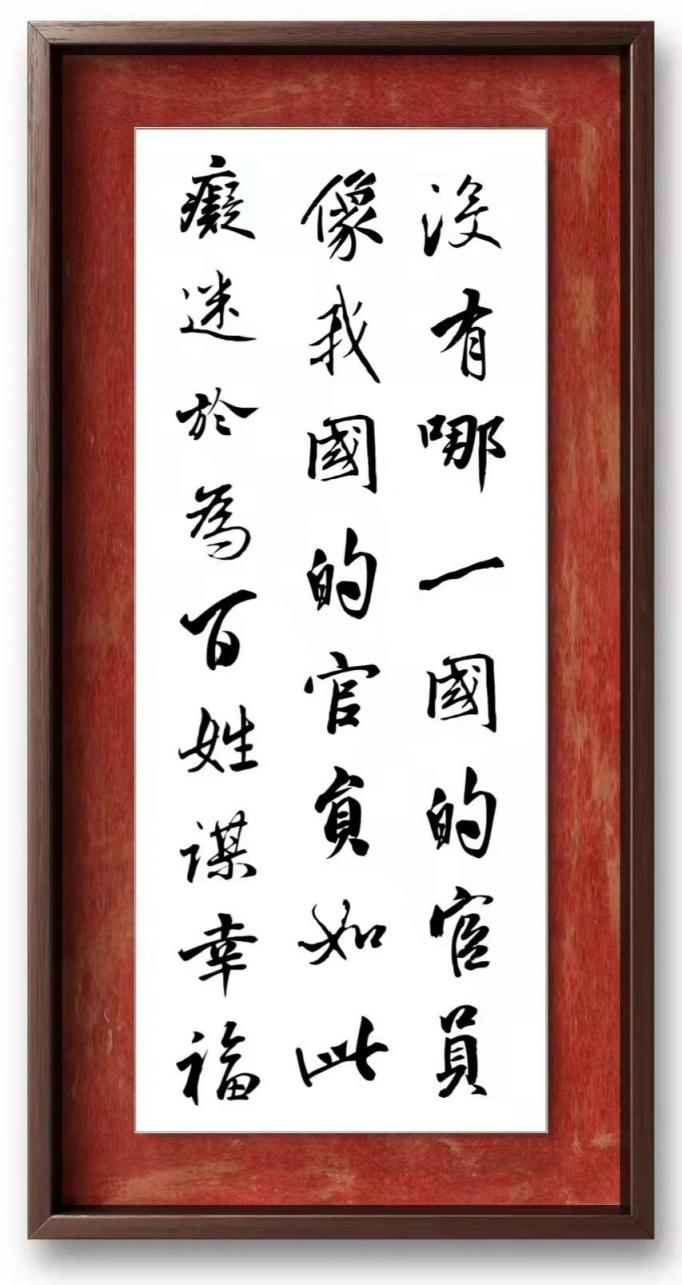 沒有哪一國的官員
像我國的官員如此
癡迷於為百姓謀幸福